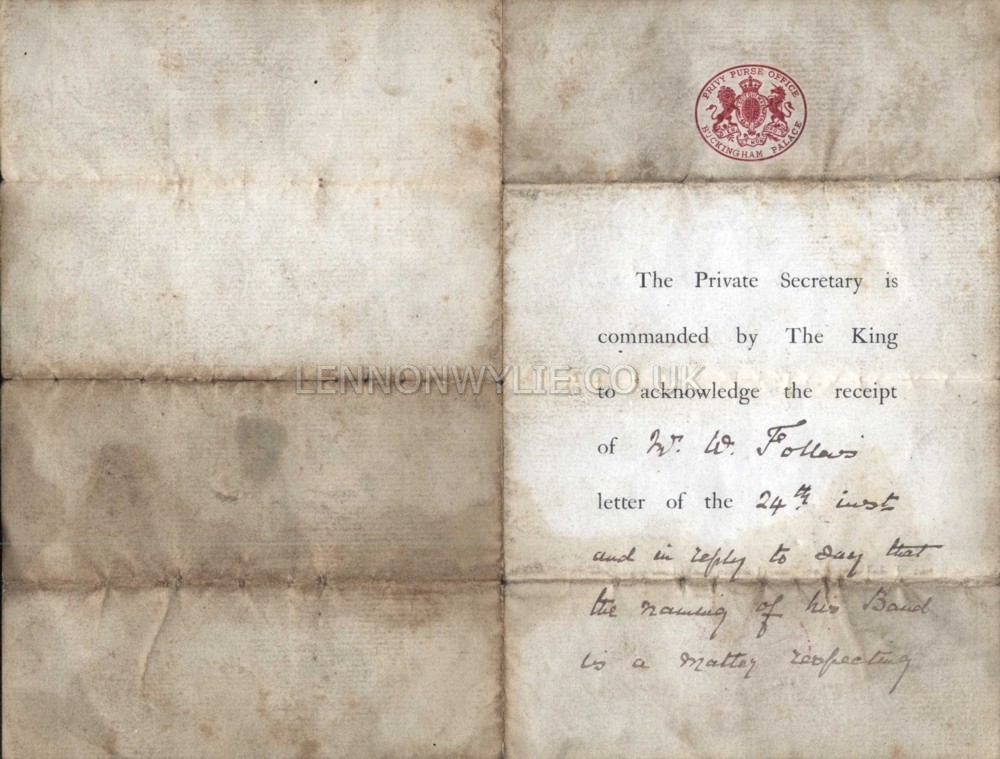 PRIVY PURSE OFFICE
BUCKINGHAM PALACE
The Private Secretary is
commanded by The King
LENNONWYLIE.CO.UK
to acknowledge the receipt
of Mr. W. Follis
letter of the 24th inst
and in reply to say that
the naming of his Band
is a matter respecting